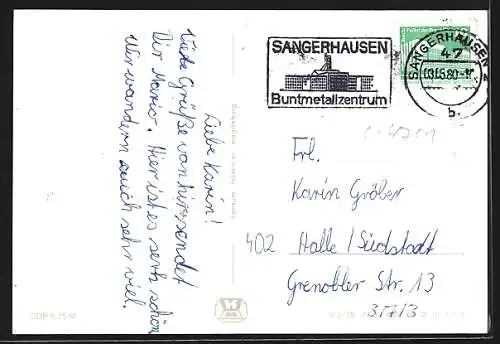 Liebe Karin!
Liebe Grüße von hier sendet
Dir Mario. Hier ist es sehr schön
Wir wandern auch sehr viel.
SANGERHAUSEN
Buntmetallzentrum
SANGERHAUSEN
47
03.06.80
b
Frl.
Karin Gröber
402 Halle/Südstadt
Grenobler Str. 13
317/3